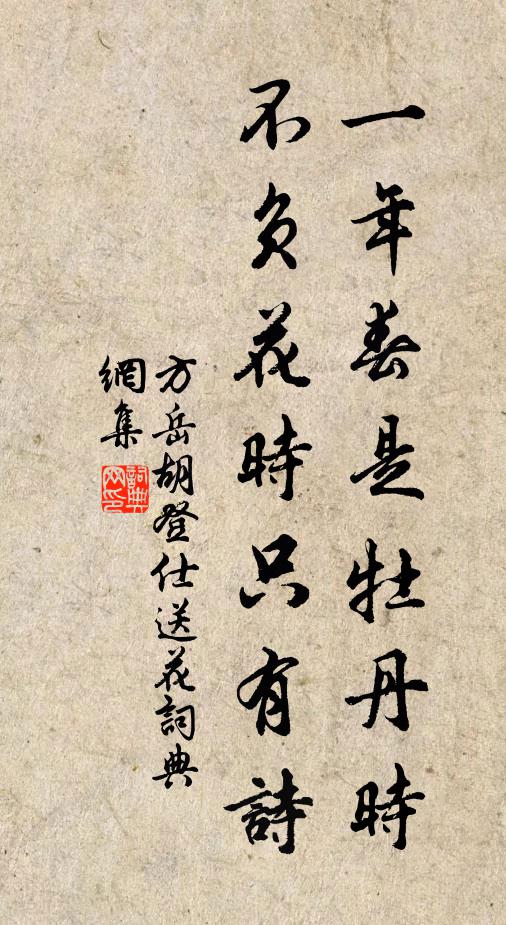 一年春是牡丹時
不負花時只有詩
方岳胡登仕送花詞典
網集
詞典
网印